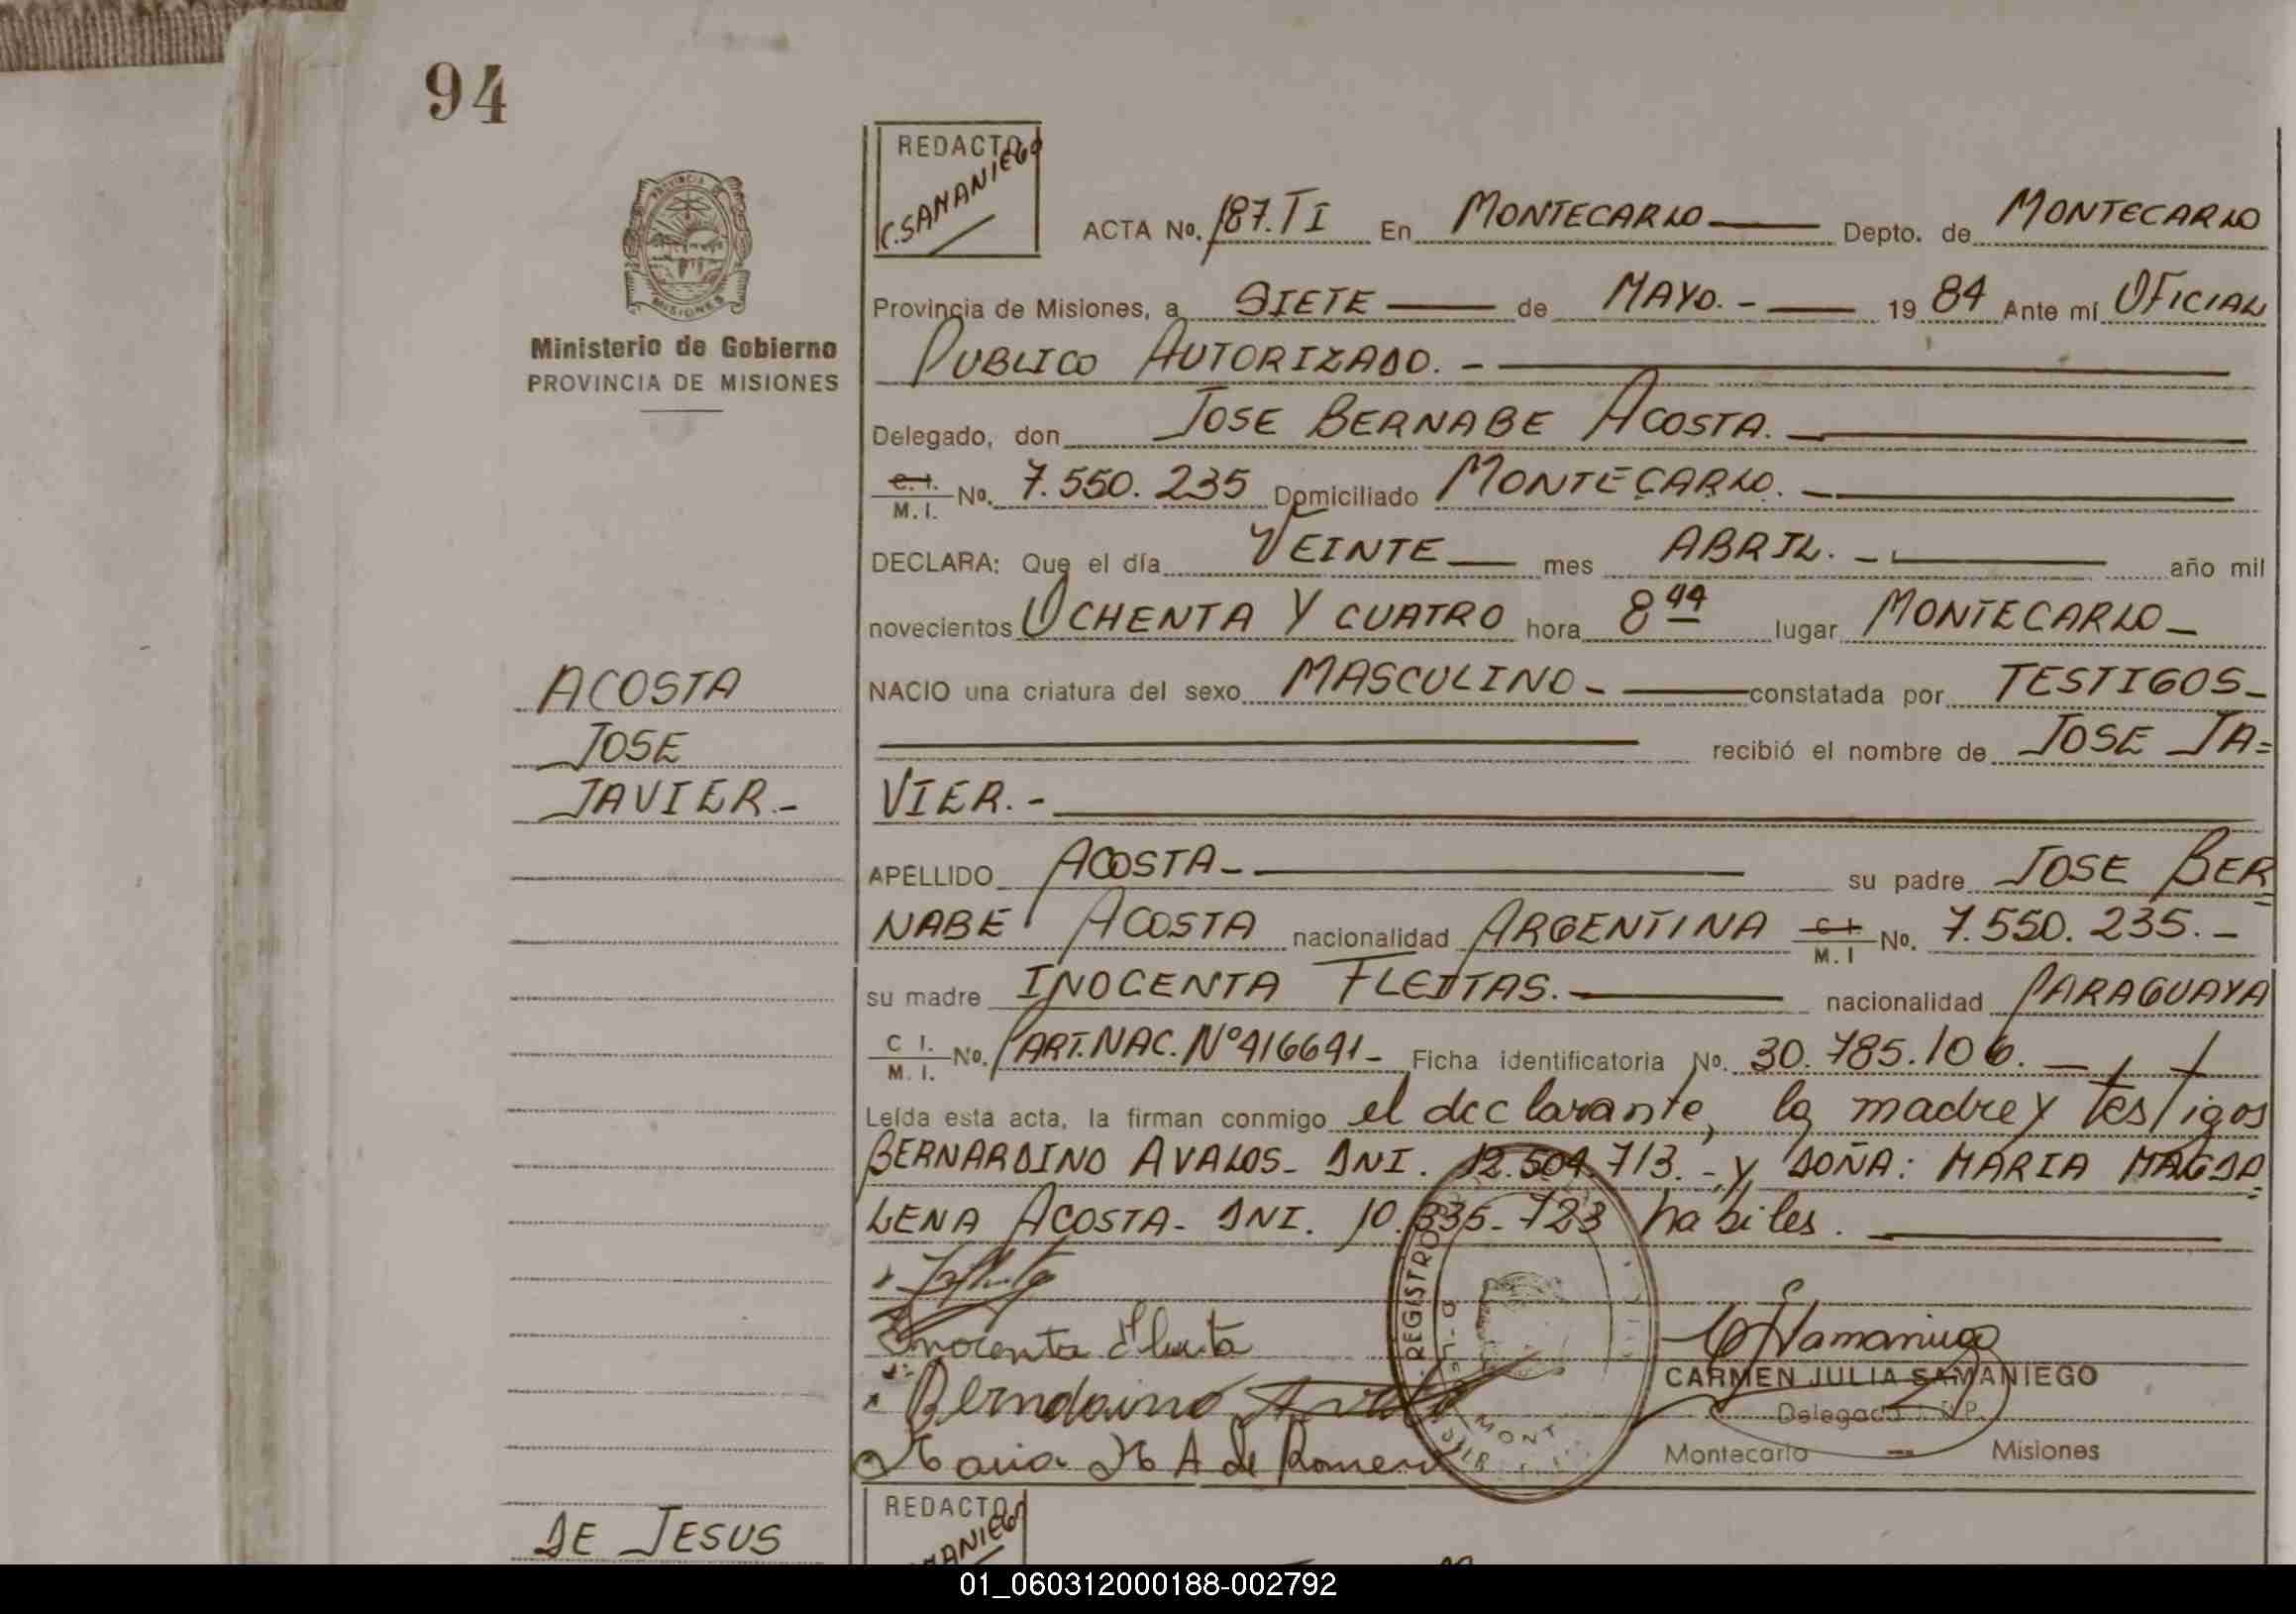 94
PROVINCIA DE
MISIONES
Ministerio de Gobierno
PROVINCIA DE MISIONES
REDACTO
C. SAMANIEGO
ACTA No. 187. T I En MONTECARLO Depto. de MONTECARLO
Provincia de Misiones, a SIETE de MAYO.- 1984 Ante mí OFICIAL
PUBLICO AUTORIZADO.-
Delegado, don JOSE BERNABE ACOSTA.
C. I.
M. I. No. 7.550.235 Domiciliado MONTECARLO.-
DECLARA: Que el día VEINTE mes ABRIL.- año mil
novecientos OCHENTA Y CUATRO hora 8 44 lugar MONTECARLO-
NACIO una criatura del sexo MASCULINO- constatada por TESTIGOS-
recibió el nombre de JOSE JA=
VIER.-
APELLIDO ACOSTA- su padre JOSE BER
NABE ACOSTA nacionalidad ARGENTINA C I. M. I No. 7.550.235.-
su madre INOCENTA FLEITAS. nacionalidad PARAGUAYA
C I.
M. I. No. PART. NAC. Nº 416641- Ficha identificatoria No. 30.785.106.
Leída esta acta, la firman conmigo el declarante, la madre y testigos
BERNARDINO AVALOS- DNI. 12.504.713.- y DOÑA: MARIA MAGDA=
LENA ACOSTA- DNI. 10.335-723 habiles.
ACOSTA
JOSE
JAVIER.-
Inocenta
Maria M A de Romero
REGISTRO
MONT
CARMEN JULIA SAMANIEGO
Montecarlo Misiones
REDACTO
DE JESUS
01_060312000188-002792